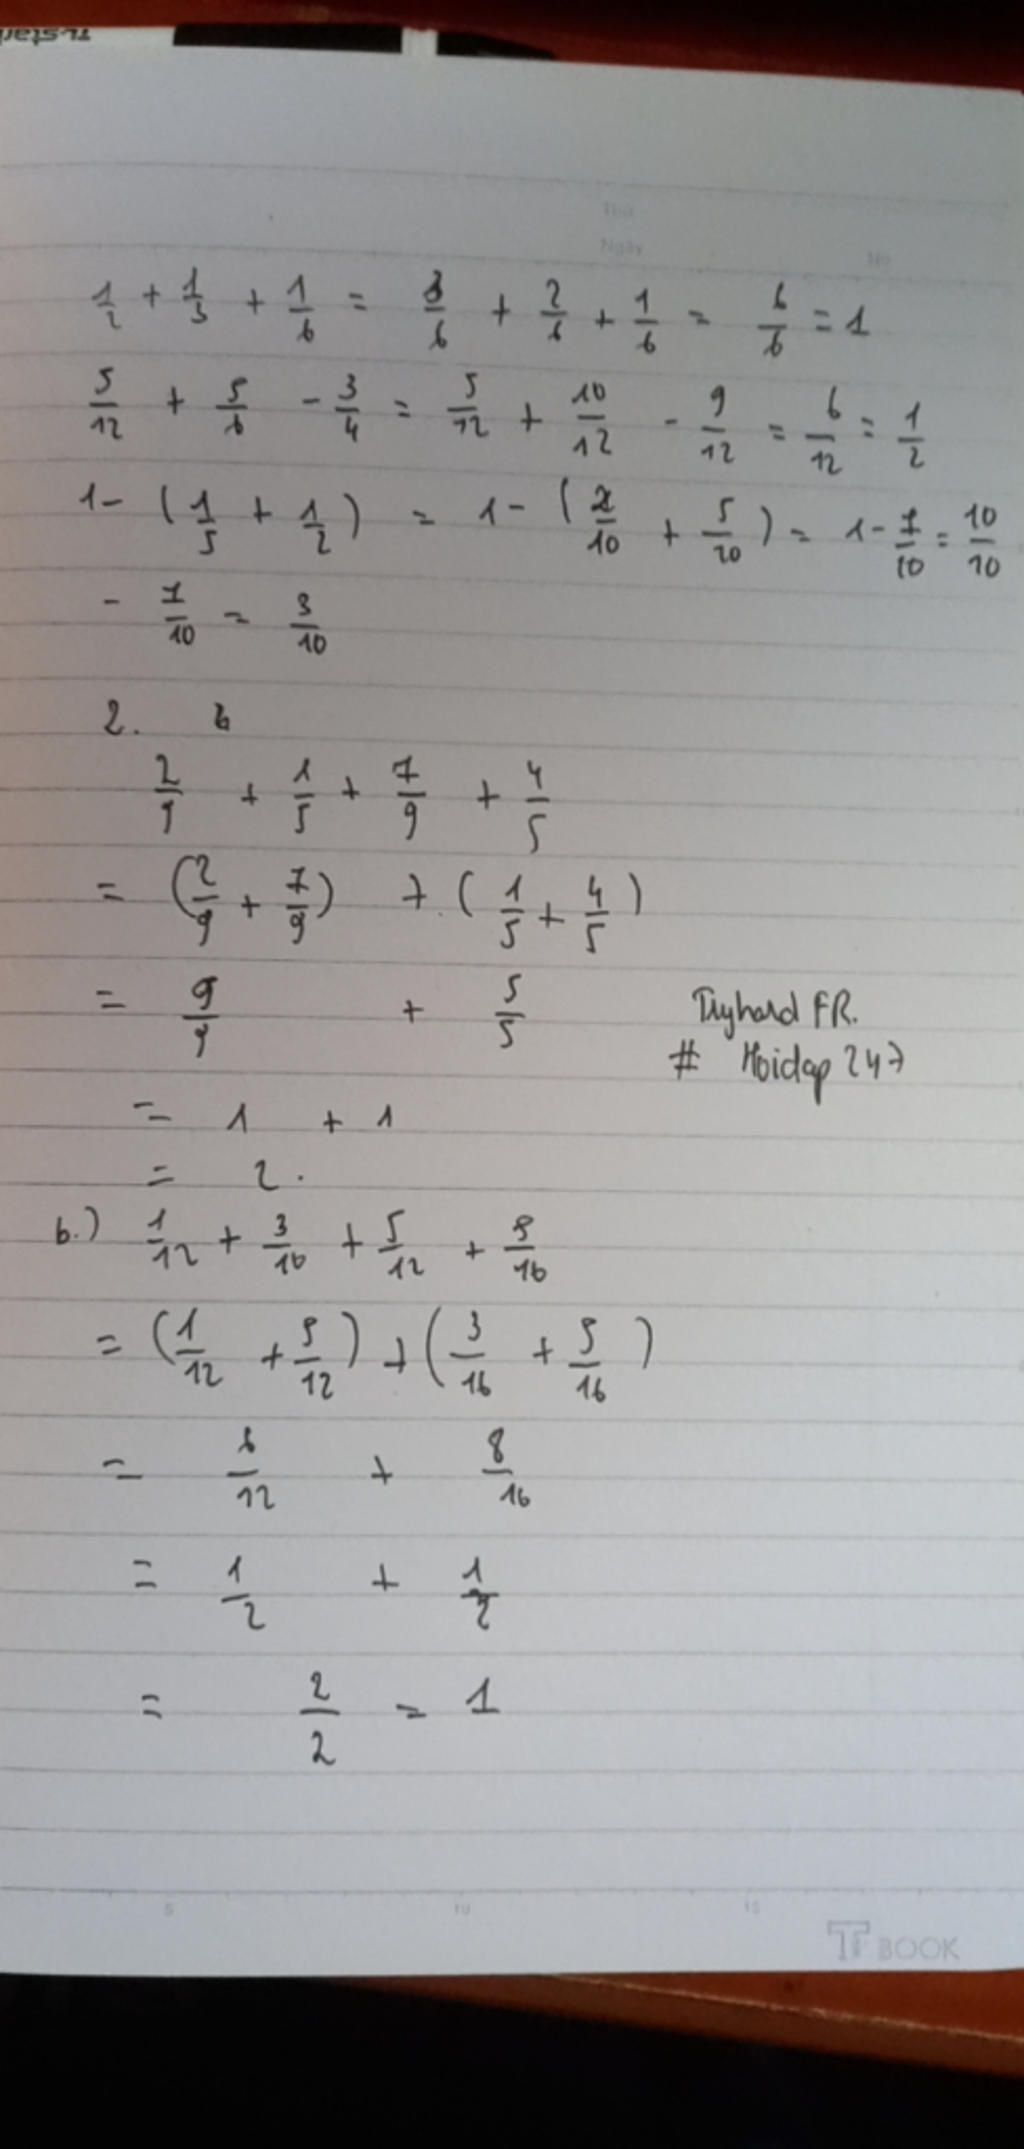 Thứ
Ngày No
1/2 + 1/3 + 1/6 = 3/6 + 2/6 + 1/6 = 6/6 = 1
5/12 + 5/6 - 3/4 = 5/12 + 10/12 - 9/12 = 6/12 = 1/2
1 - (1/5 + 1/2) = 1 - (2/10 + 5/10) = 1 - 7/10 = 10/10
- 7/10 = 3/10
2.
2/9 + 1/5 + 7/9 + 4/5
= (2/9 + 7/9) + (1/5 + 4/5)
= 9/9 + 5/5
Tryhard FR.
# Hoidap 247
= 1 + 1
= 2.
b.) 1/12 + 3/16 + 5/12 + 5/16
= (1/12 + 5/12) + (3/16 + 5/16)
= 6/12 + 8/16
= 1/2 + 1/2
= 2/2 = 1
5 10 15
TT BOOK